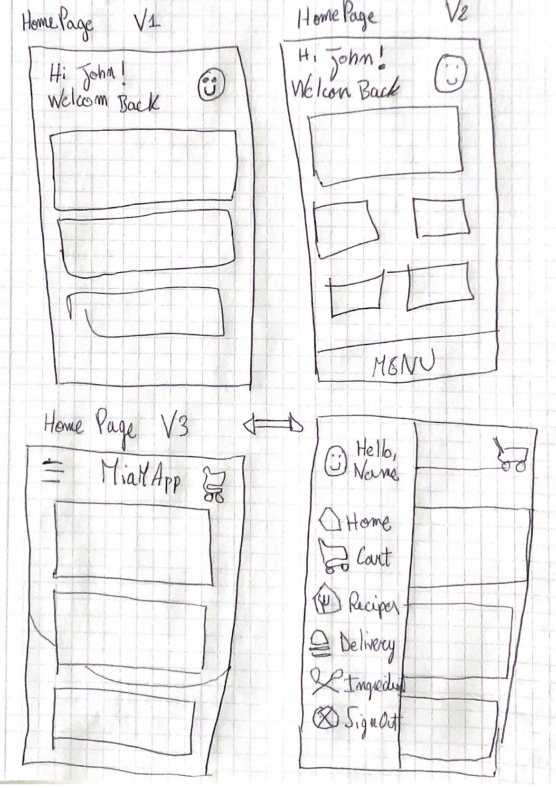 HomePage V1
Hi John!
Welcom Back
Home Page V2
Hi John!
Welcon Back
MENU
Home Page V3
MiaMApp
Hello,
Name
Home
Cart
Recipes
Delivery
Ingredient
SignOut